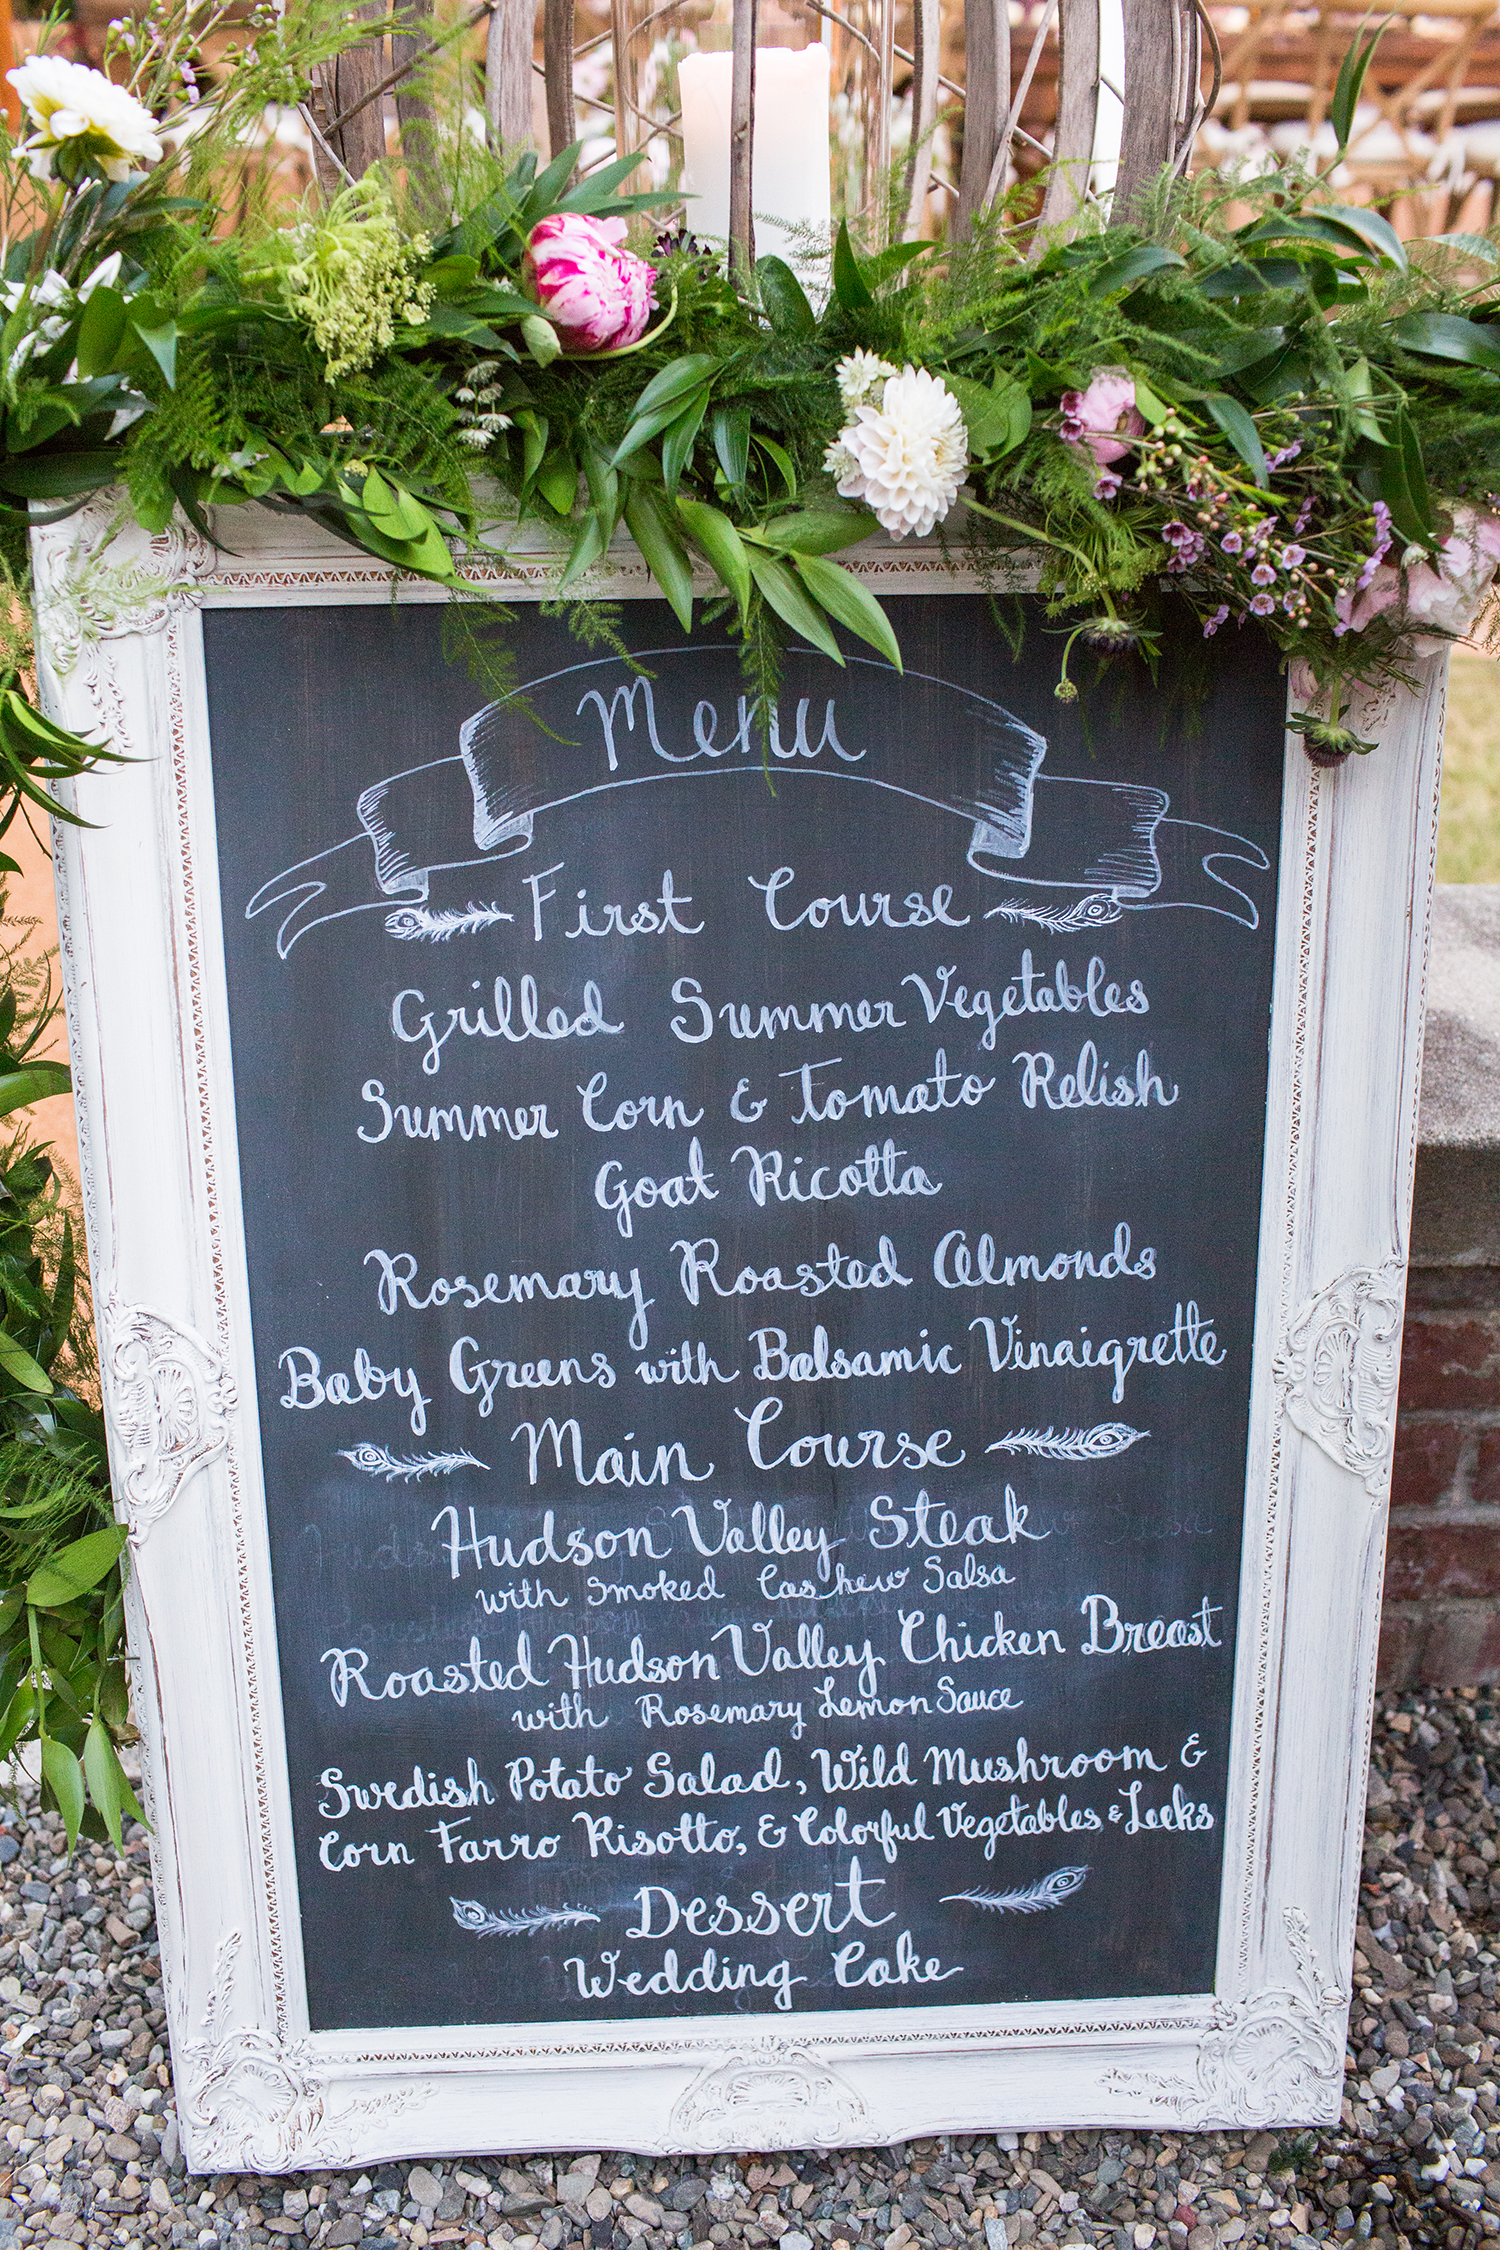 Menu
First Course
Grilled Summer Vegetables
Summer Corn & Tomato Relish
Goat Ricotta
Rosemary Roasted Almonds
Baby Greens with Balsamic Vinaigrette
Main Course
Hudson Valley Steak
with Smoked Cashew Salsa
Roasted Hudson Valley Chicken Breast
with Rosemary Lemon Sauce
Swedish Potato Salad, Wild Mushroom &
Corn Farro Risotto, & Colorful Vegetables & Leeks
Dessert
Wedding Cake